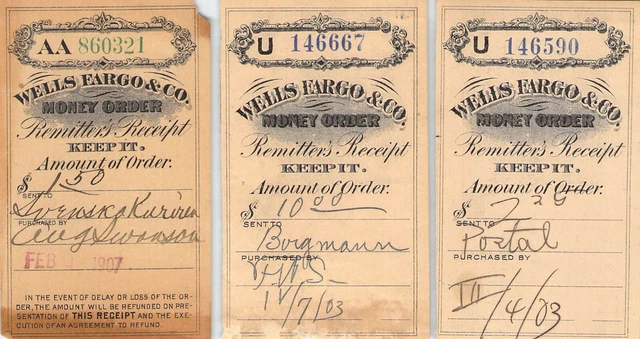 AA 860321
WELLS FARGO & CO.
MONEY ORDER
Remitter's Receipt
KEEP IT.
Amount of Order.
$ 1.50
SENT TO
Svenska Kuriren
PURCHASED BY
Aug Swanson
FEB 1907
IN THE EVENT OF DELAY OR LOSS OF THE OR-
DER, THE AMOUNT WILL BE REFUNDED ON PRE-
SENTATION OF THIS RECEIPT AND THE EXE-
CUTION OF AN AGREEMENT TO REFUND.
U 146667
WELLS FARGO & CO.
MONEY ORDER
Remitter's Receipt
KEEP IT.
Amount of Order.
$ 10 00
SENT TO
Borgmann
PURCHASED BY
/7/03
U 146590
WELLS FARGO & CO.
MONEY ORDER
Remitter's Receipt
KEEP IT.
Amount of Order.
$
SENT TO
Postal
PURCHASED BY
III/4/03